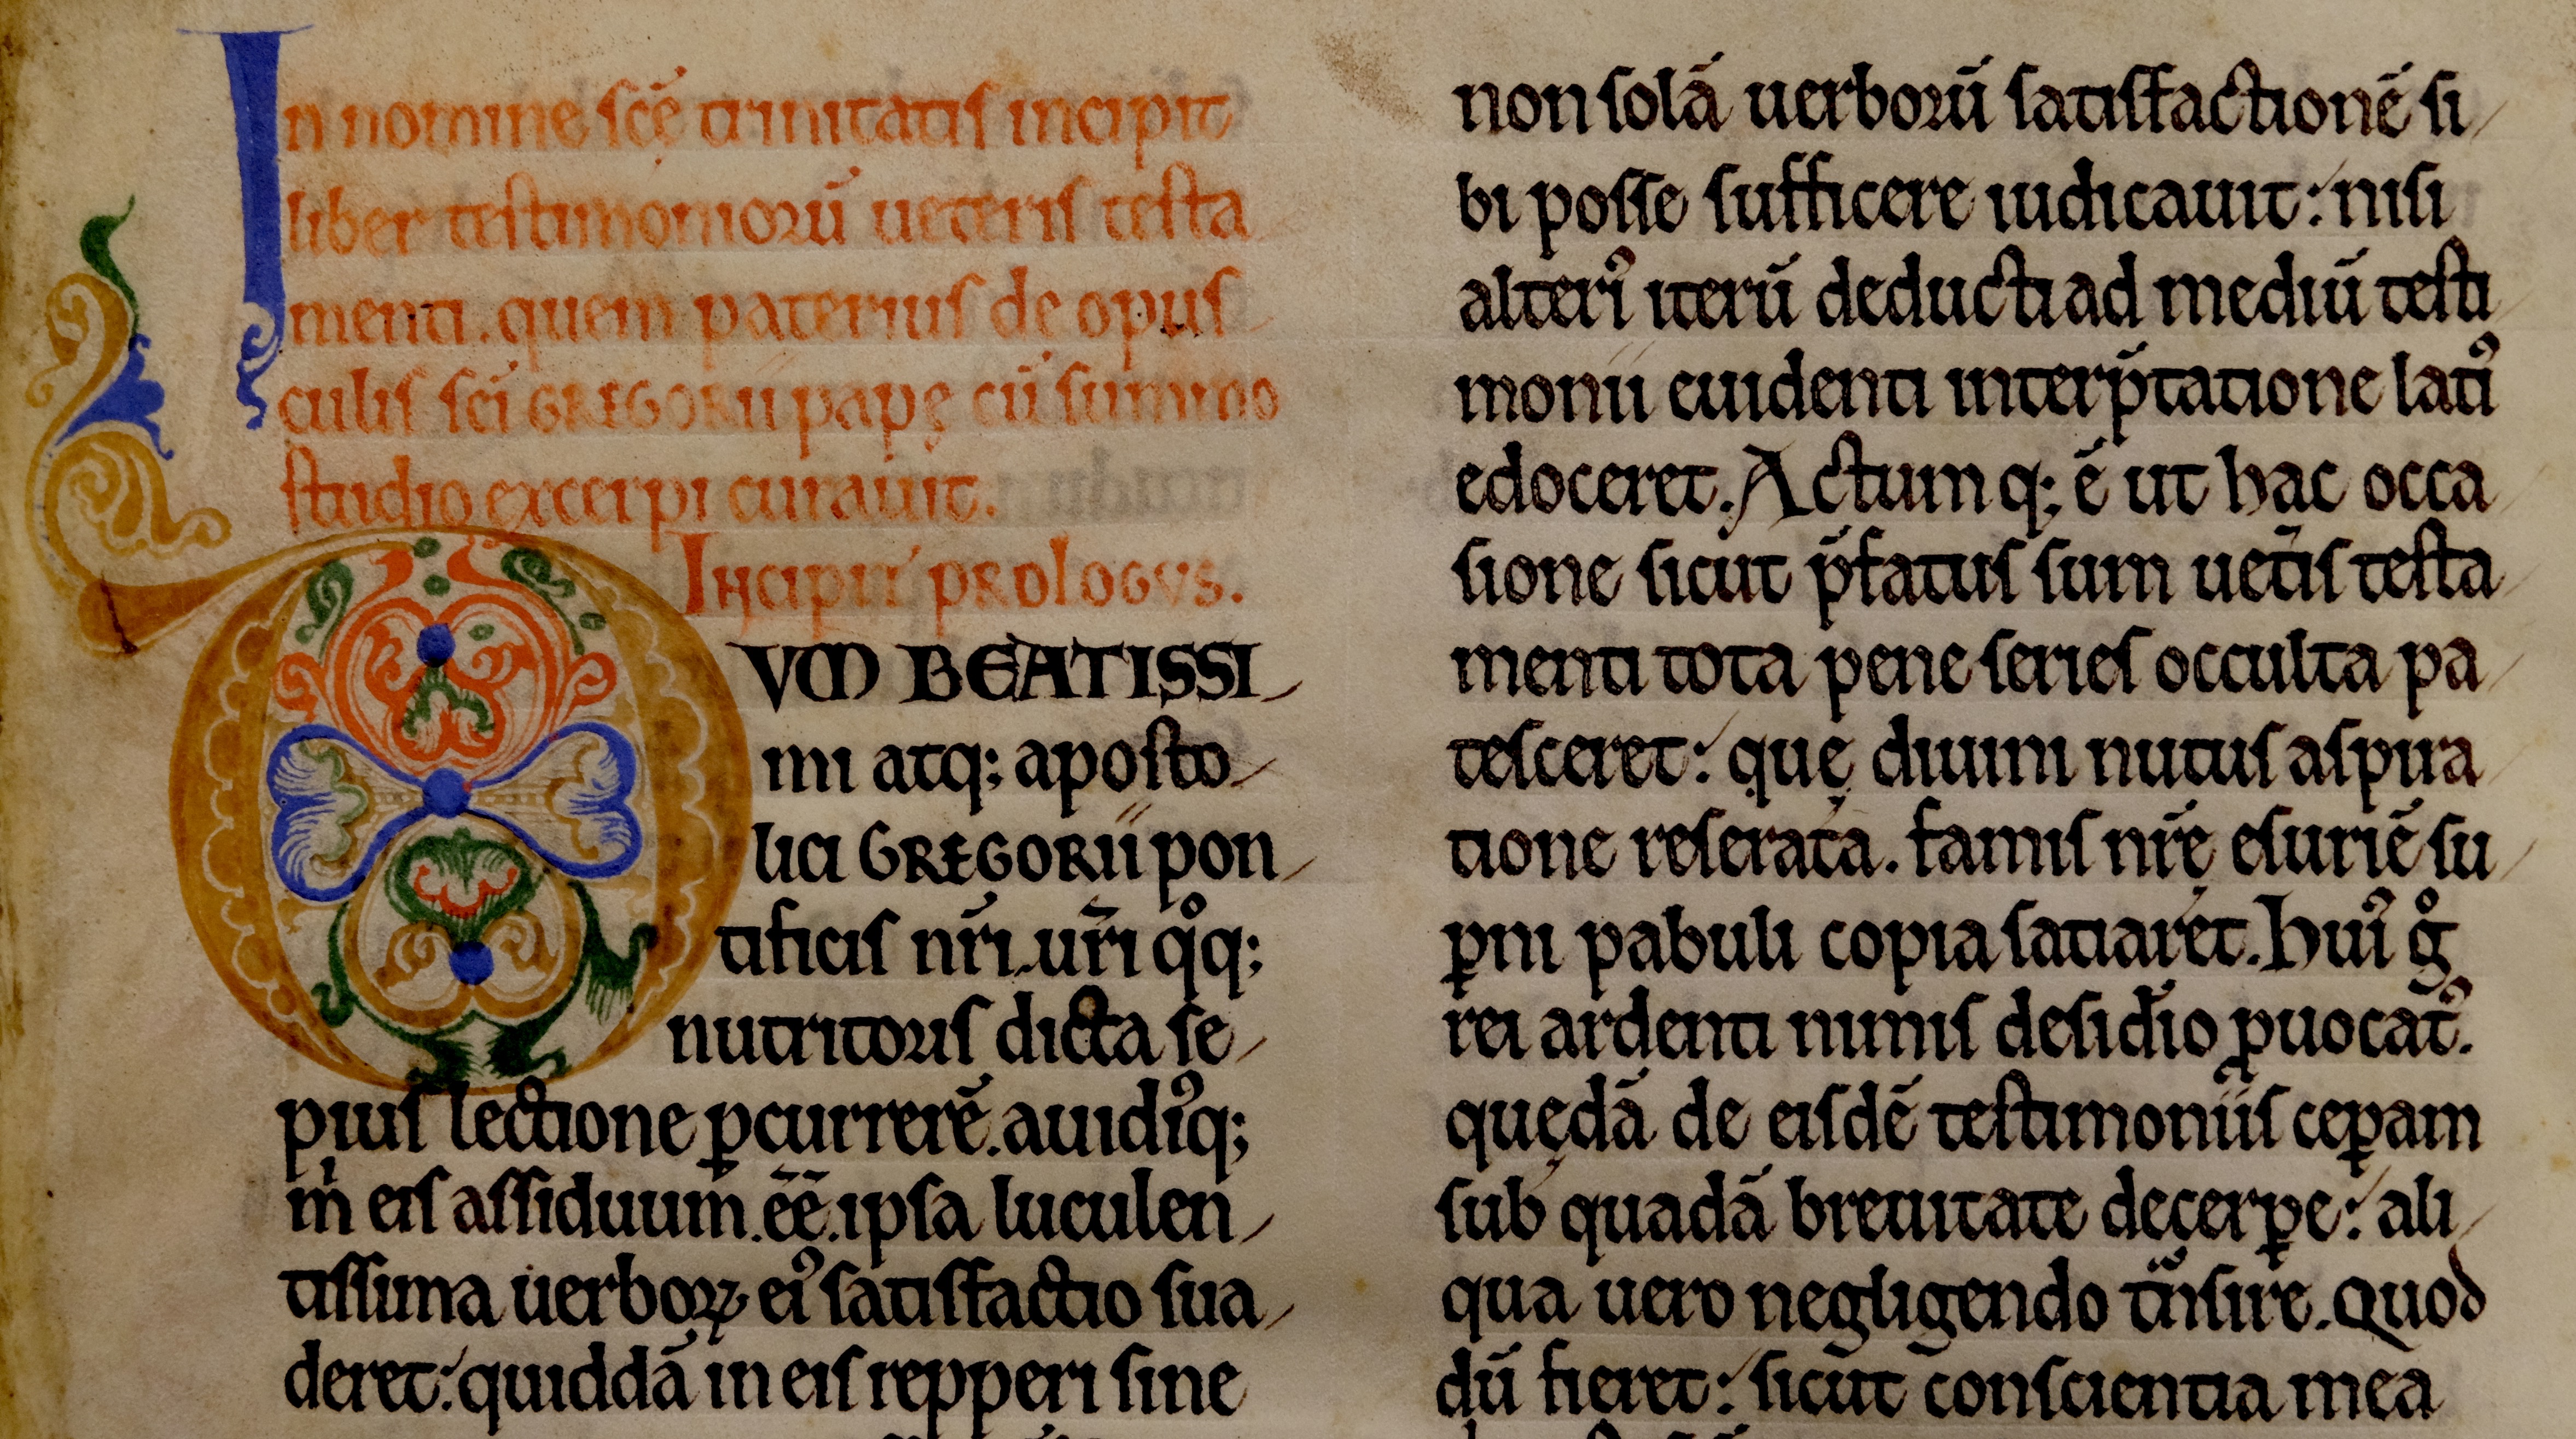 In nomine scē trinitatis incipit
liber testimoniorū ueteris testa
menti. quem paterius de opus
culis sc̄i GREGORii papę cū summo
studio excerpi curauit.
Incipit pROlOGVS.
QVM BEATISSI
mi atq; aposto
lici GREGORii pon
tificis nr̄i. ur̄i qͦq;
nutritoris dicta se
pius lectione ꝑcurrerē. auidiꝰq;
m̍ eis assiduum. ēē. ipsa luculen
tissima uerboꝝ eiꝰ satisfactio sua
deret: quiddā in eis repperi sine
non solā uerborū satisfactionē si
bi posse sufficere iudicauit: nisi
alteriꝰ iterū deducti ad mediū testi
monii euidenti interp̄tatione latiꝰ
edoceret. Actumq; ē ut hac occa
sione sicut p̄fatus sum uet̄is testa
menti tota pene series occulta pa
tesceret: quę diuini nutus aspira
tione reserata. famis nr̄ę esuriē su
ꝑni pabuli copia satiaret. Huiꝰ gͦ
rei ardenti nimis desid̄io ꝓuocatꝰ.
quędā de eisdē testimoniis ceꝑam
sub quadā breuitate decerꝑe: ali
qua uero negligendo t̄nsire. Quod
dū fieret: sicut conscientia mea